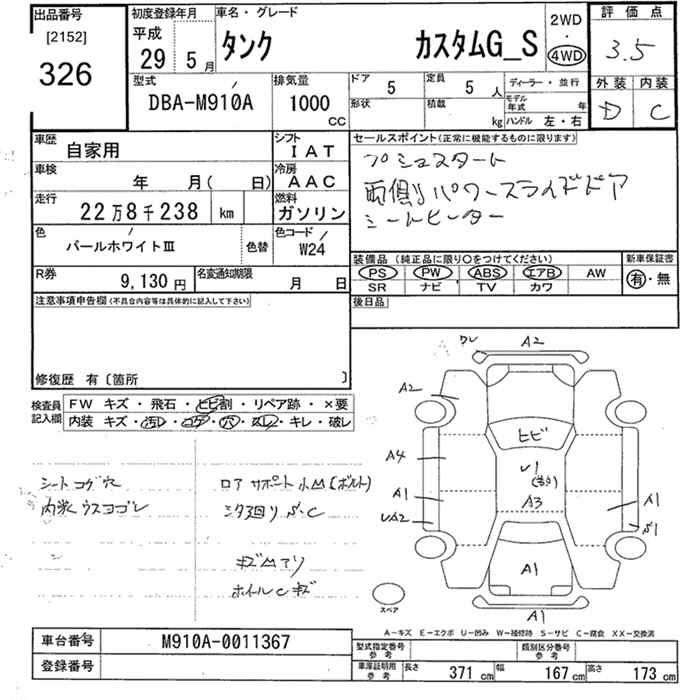 出品番号
[2152]
326
初度登録年月
平成
29 5月
車名・グレード
タンク カスタムG_S
2WD
・
4WD
評価点
3.5
外装 内装
D C
型式
DBA-M910A
排気量
1000
CC
ドア 5
定員 5人
ディーラー・並行
形状
積載 kg
モデル年式 年
ハンドル 左・右
車歴
自家用
シフト
IAT
車検
年 月( 日)
冷房
AAC
走行
22万8千238 km
燃料
ガソリン
色
パールホワイトⅢ
色替
色コード
W24
R券
9,130円
名変通知期限
月 日
セールスポイント(正常に機能するものに限ります)
プシュスタート
両側パワースライドドア
シートヒーター
装備品(純正品に限り○をつけてください)
PS PW ABS エアB AW
SR ナビ TV カワ
新車保証書
有・無
後日品
注意事項申告欄(不具合内容等は具体的に記入して下さい)
修復歴 有〔箇所 〕
検査員
記入欄
FW キズ・飛石・ヒビ割・リペア跡・×要
内装 キズ・汚レ・コゲ・穴・スレ・キレ・破レ
シートコゲ穴
内装ウスヨゴレ
ロアサポート小凹(ボルト)
シタ廻りS・C
キズ凹アリ
ホイルCキズ
A2
A2
A4
A1
UA2
ヒビ
U1
A3
A1
S1
A1
A1
スペア
A-キズ E-エクボ U-凹み W-補修跡 S-サビ C-腐食 XX-交換済
車台番号
M910A-0011367
登録番号
型式指定番号
参考
類別区分番号
参考
車庫証明用
参考
長さ 371 cm
幅 167 cm
高さ 173 cm